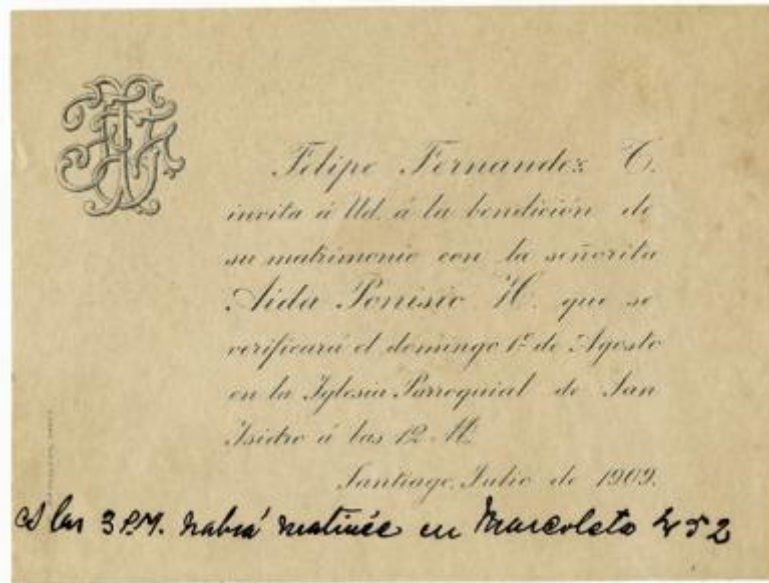 Felipe Fernandez C.
invita á Ud. á la bendición de
su matrimonio con la señorita
Aida Ponisio H. que se
verificará el domingo 1º de Agosto
en la Iglesia Parroquial de San
Isidro á las 12 M.
Santiago, Julio de 1909.
A las 3 P.M. habrá matinée en Marcoleto 452